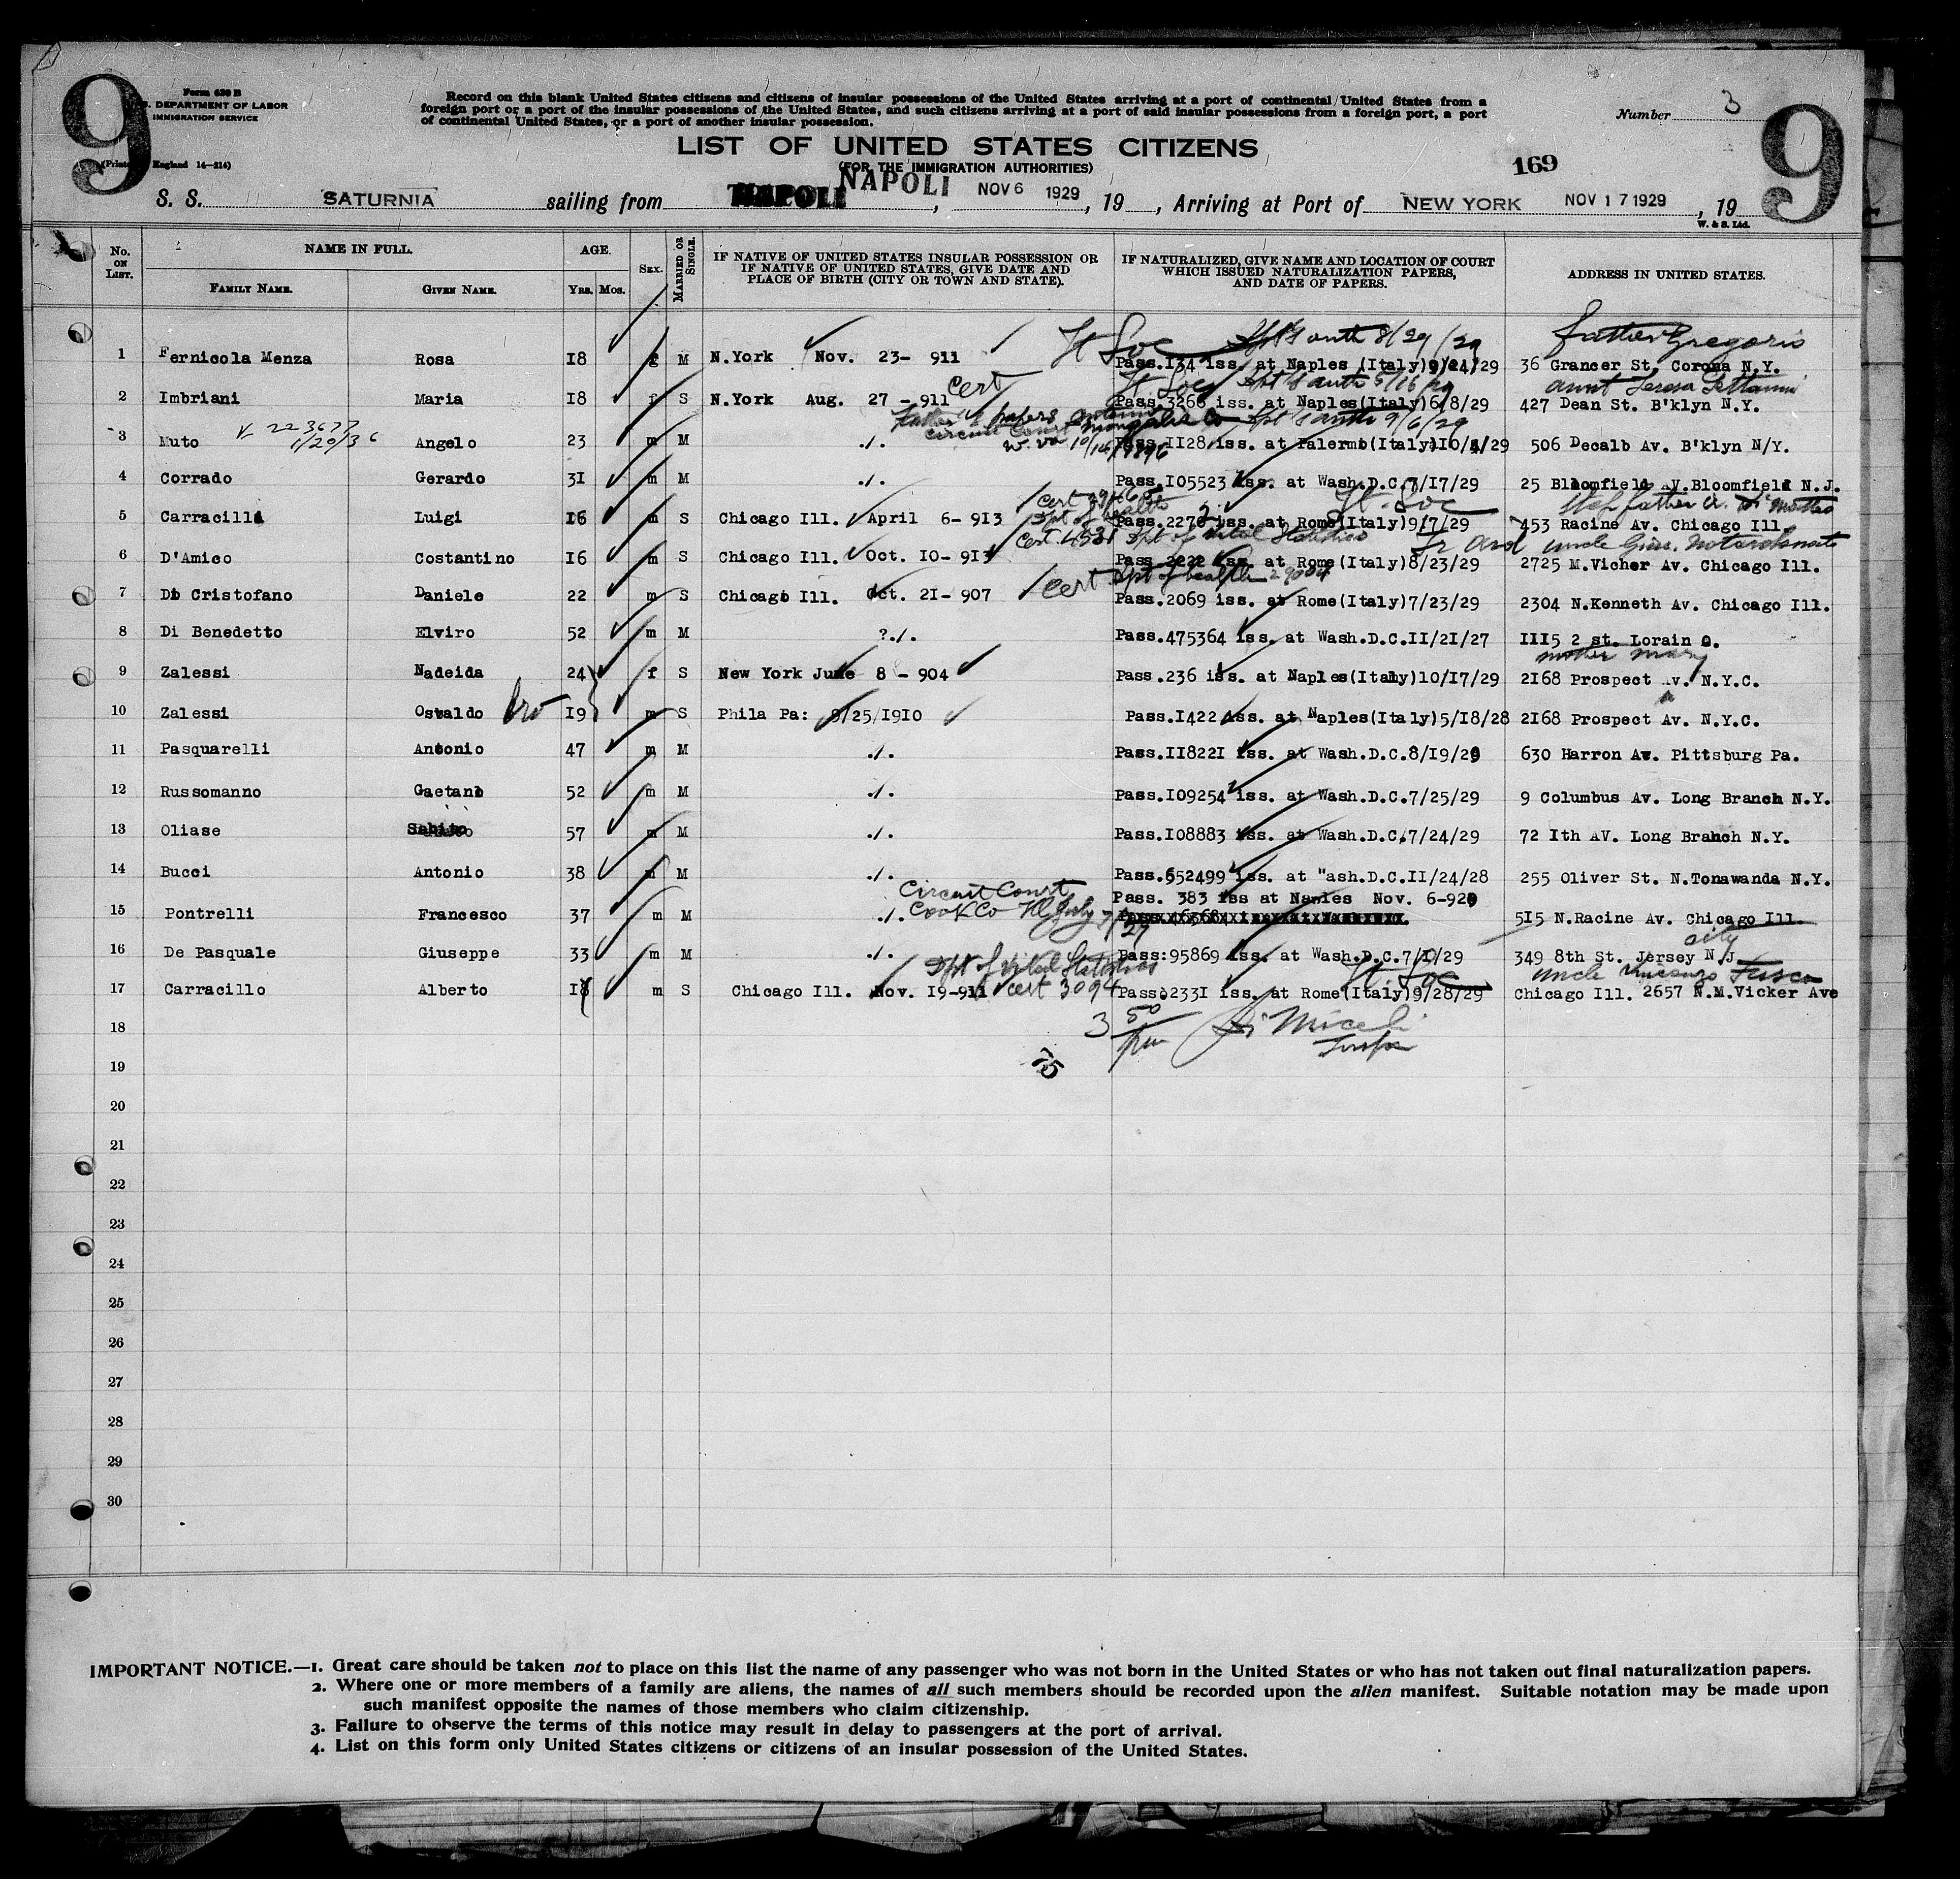 9
Form 630 B
U.S. DEPARTMENT OF LABOR
IMMIGRATION SERVICE
England 14—214)
Record on this blank United States citizens and citizens of insular possessions of the United States arriving at a port of continental United States from a
foreign port or a port of the insular possessions of the United States, and such citizens arriving at a port of said insular possessions from a foreign port, a port
of continental United States, or a port of another insular possession.
Number 3
9
LIST OF UNITED STATES CITIZENS
(FOR THE IMMIGRATION AUTHORITIES)
169
S. S. SATURNIA sailing from NAPOLI NAPOLI, NOV 6 1929, 19 , Arriving at Port of NEW YORK NOV 17 1929, 19
W. & S. Ltd.
No. ON LIST.
NAME IN FULL.
FAMILY NAME. GIVEN NAME.
AGE.
YRS. MOS.
SEX.
MARRIED OR SINGLE.
IF NATIVE OF UNITED STATES INSULAR POSSESSION OR
IF NATIVE OF UNITED STATES, GIVE DATE AND
PLACE OF BIRTH (CITY OR TOWN AND STATE).
IF NATURALIZED, GIVE NAME AND LOCATION OF COURT
WHICH ISSUED NATURALIZATION PAPERS,
AND DATE OF PAPERS.
ADDRESS IN UNITED STATES.
8/29/29 father Gregorio
1 Fernicola Menza Rosa I8 f M N.York Nov. 23- 911 Pass.I34 iss. at Naples (Italy)9/24/29 36 Grancer St, Corona N.Y.
Cert aunt Teresa
2 Imbriani Maria I8 f S N.York Aug. 27 -911 Pass.3266 iss. at Naples(Italy)6/8/29 427 Dean St. B'klyn N.Y.
V. 223677 1/20/36 Father's papers Antonio Circuit Court W. Va 10/14/1896 9/6/29
3 Muto Angelo 23 m M ./. Pass.II28 iss. at Palermo(Italy)I0/4/29 506 Decalb Av. B'klyn N/Y.
4 Corrado Gerardo 3I m M ./. Pass.I05523 iss. at Wash.D.C.7/I7/29 25 Bloomfield AV.Bloomfield N.J.
Cert Dpt of health step father
5 Carracilli Luigi I6 m S Chicago Ill. April 6- 9I3 Pass.2270 iss. at Rome(Italy)9/7/29 453 Racine Av. Chicago Ill.
Cert. Dpt of Vital Statistics uncle
6 D'Amico Costantino I6 m S Chicago Ill. Oct. I0- 9I3 Pass.2222 iss. at Rome(Italy)8/23/29 2725 M.Vicher Av. Chicago Ill.
Cert Dpt of health 29004
7 Di Cristofano Daniele 22 m S Chicago Ill. Oct. 2I- 907 Pass.2069 iss. at Rome(Italy)7/23/29 2304 N.Kenneth Av. Chicago Ill.
8 Di Benedetto Elviro 52 m M ?./. Pass.475364 iss. at Wash.D.C.II/2I/27 III5 2 st. Lorain O.
mother Mary
9 Zalessi Nadeida 24 f S New York June 8 - 904 Pass.236 iss. at Naples(Italy)I0/I7/29 2I68 Prospect Av. N.Y.C.
bro
10 Zalessi Osvaldo I9 m S Phila Pa: 9/25/I9I0 Pass.I422 iss. at Naples(Italy)5/I8/28 2I68 Prospect Av. N.Y.C.
11 Pasquarelli Antonio 47 m M ./. Pass.II822I iss. at Wash.D.C.8/I9/29 630 Harron Av. Pittsburg Pa.
12 Russomanno Gaetano 52 m M ./. Pass.I09254 iss. at Wash.D.C.7/25/29 9 Columbus Av. Long Branch N.Y.
13 Oliase Sabito 57 m M ./. Pass.I08883 iss. at Wash.D.C.7/24/29 72 Ith AV. Long Branch N.Y.
14 Bucci Antonio 38 m M ./. Pass.652499 iss. at "ash.D.C.II/24/28 255 Oliver St. N.Tonawanda N.Y.
Circuit Court Cook Co Ill July Pass. 383 iss at Naples Nov. 6-929
15 Pontrelli Francesco 37 m M ./. 515 N.Racine Av. Chicago Ill.
city
16 De Pasquale Giuseppe 33 m M ./. Pass:95869 iss. at Wash.D.C.7/I/29 349 8th St. Jersey N/J.
Dpt of Vital Statistics cert 3094 uncle Vincenzo Fusco
17 Carracillo Alberto I8 m S Chicago Ill. Nov. I9-9II Pass.233I iss. at Rome(Italy)9/28/29 Chicago Ill. 2657 N.M.Vicker Ave
18
3 50
Miceli
75
19
20
21
22
23
24
25
26
27
28
29
30
IMPORTANT NOTICE.—1. Great care should be taken not to place on this list the name of any passenger who was not born in the United States or who has not taken out final naturalization papers.
2. Where one or more members of a family are aliens, the names of all such members should be recorded upon the alien manifest. Suitable notation may be made upon
such manifest opposite the names of those members who claim citizenship.
3. Failure to observe the terms of this notice may result in delay to passengers at the port of arrival.
4. List on this form only United States citizens or citizens of an insular possession of the United States.